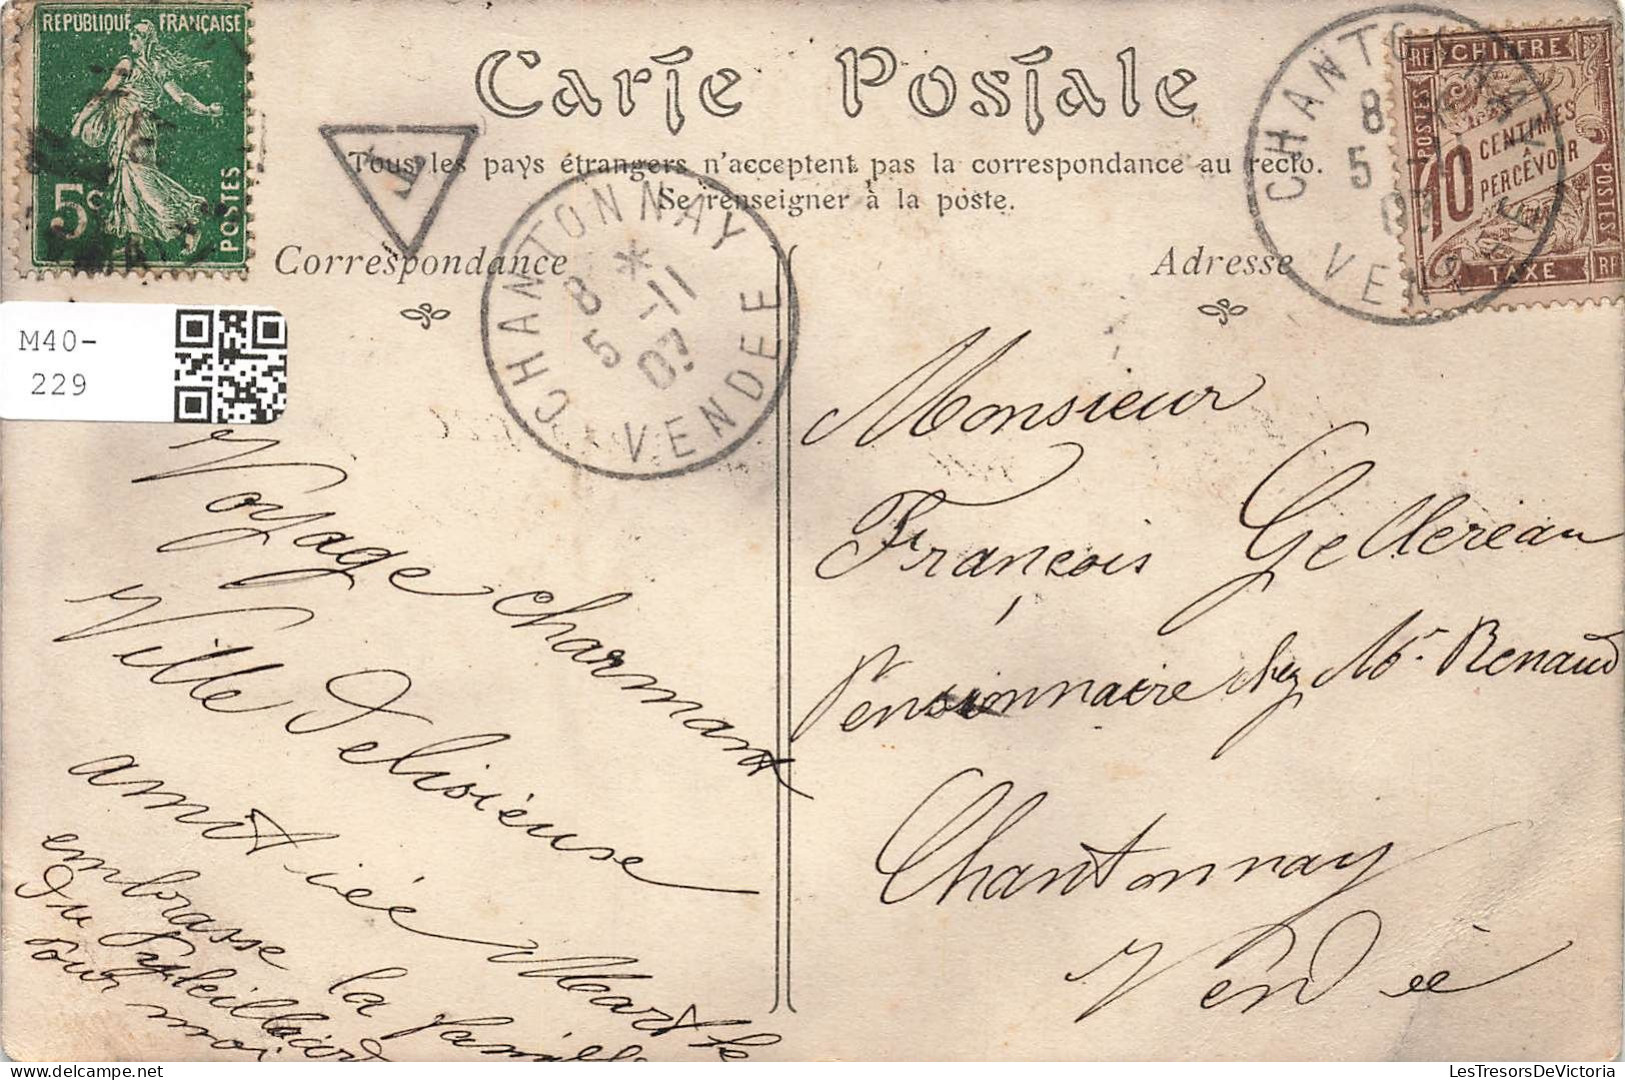 REPUBLIQUE FRANÇAISE
5c
POSTES
Carte Postale
T
Tous les pays étrangers n'acceptent pas la correspondance au recto.
Se renseigner à la poste.
Correspondance
Adresse
CHANTONNAY
8 *
5 -11
07
VENDEE
CHANTONNAY
8
5 -11
07
VENDEE
RF CHIFFRE RF
POSTES
10 CENTIMES
PERCEVOIR
POSTES
TAXE RF
M40-
229
Voyage charmant
Ville Delisieuse
amitiéé Marthe
embrasse la famille
Du
Pour moi
Monsieur
François Gellereau
Pensionnaire chez Mr Renaud
Chantonnay
Vendée
LesTresorsDeVictoria